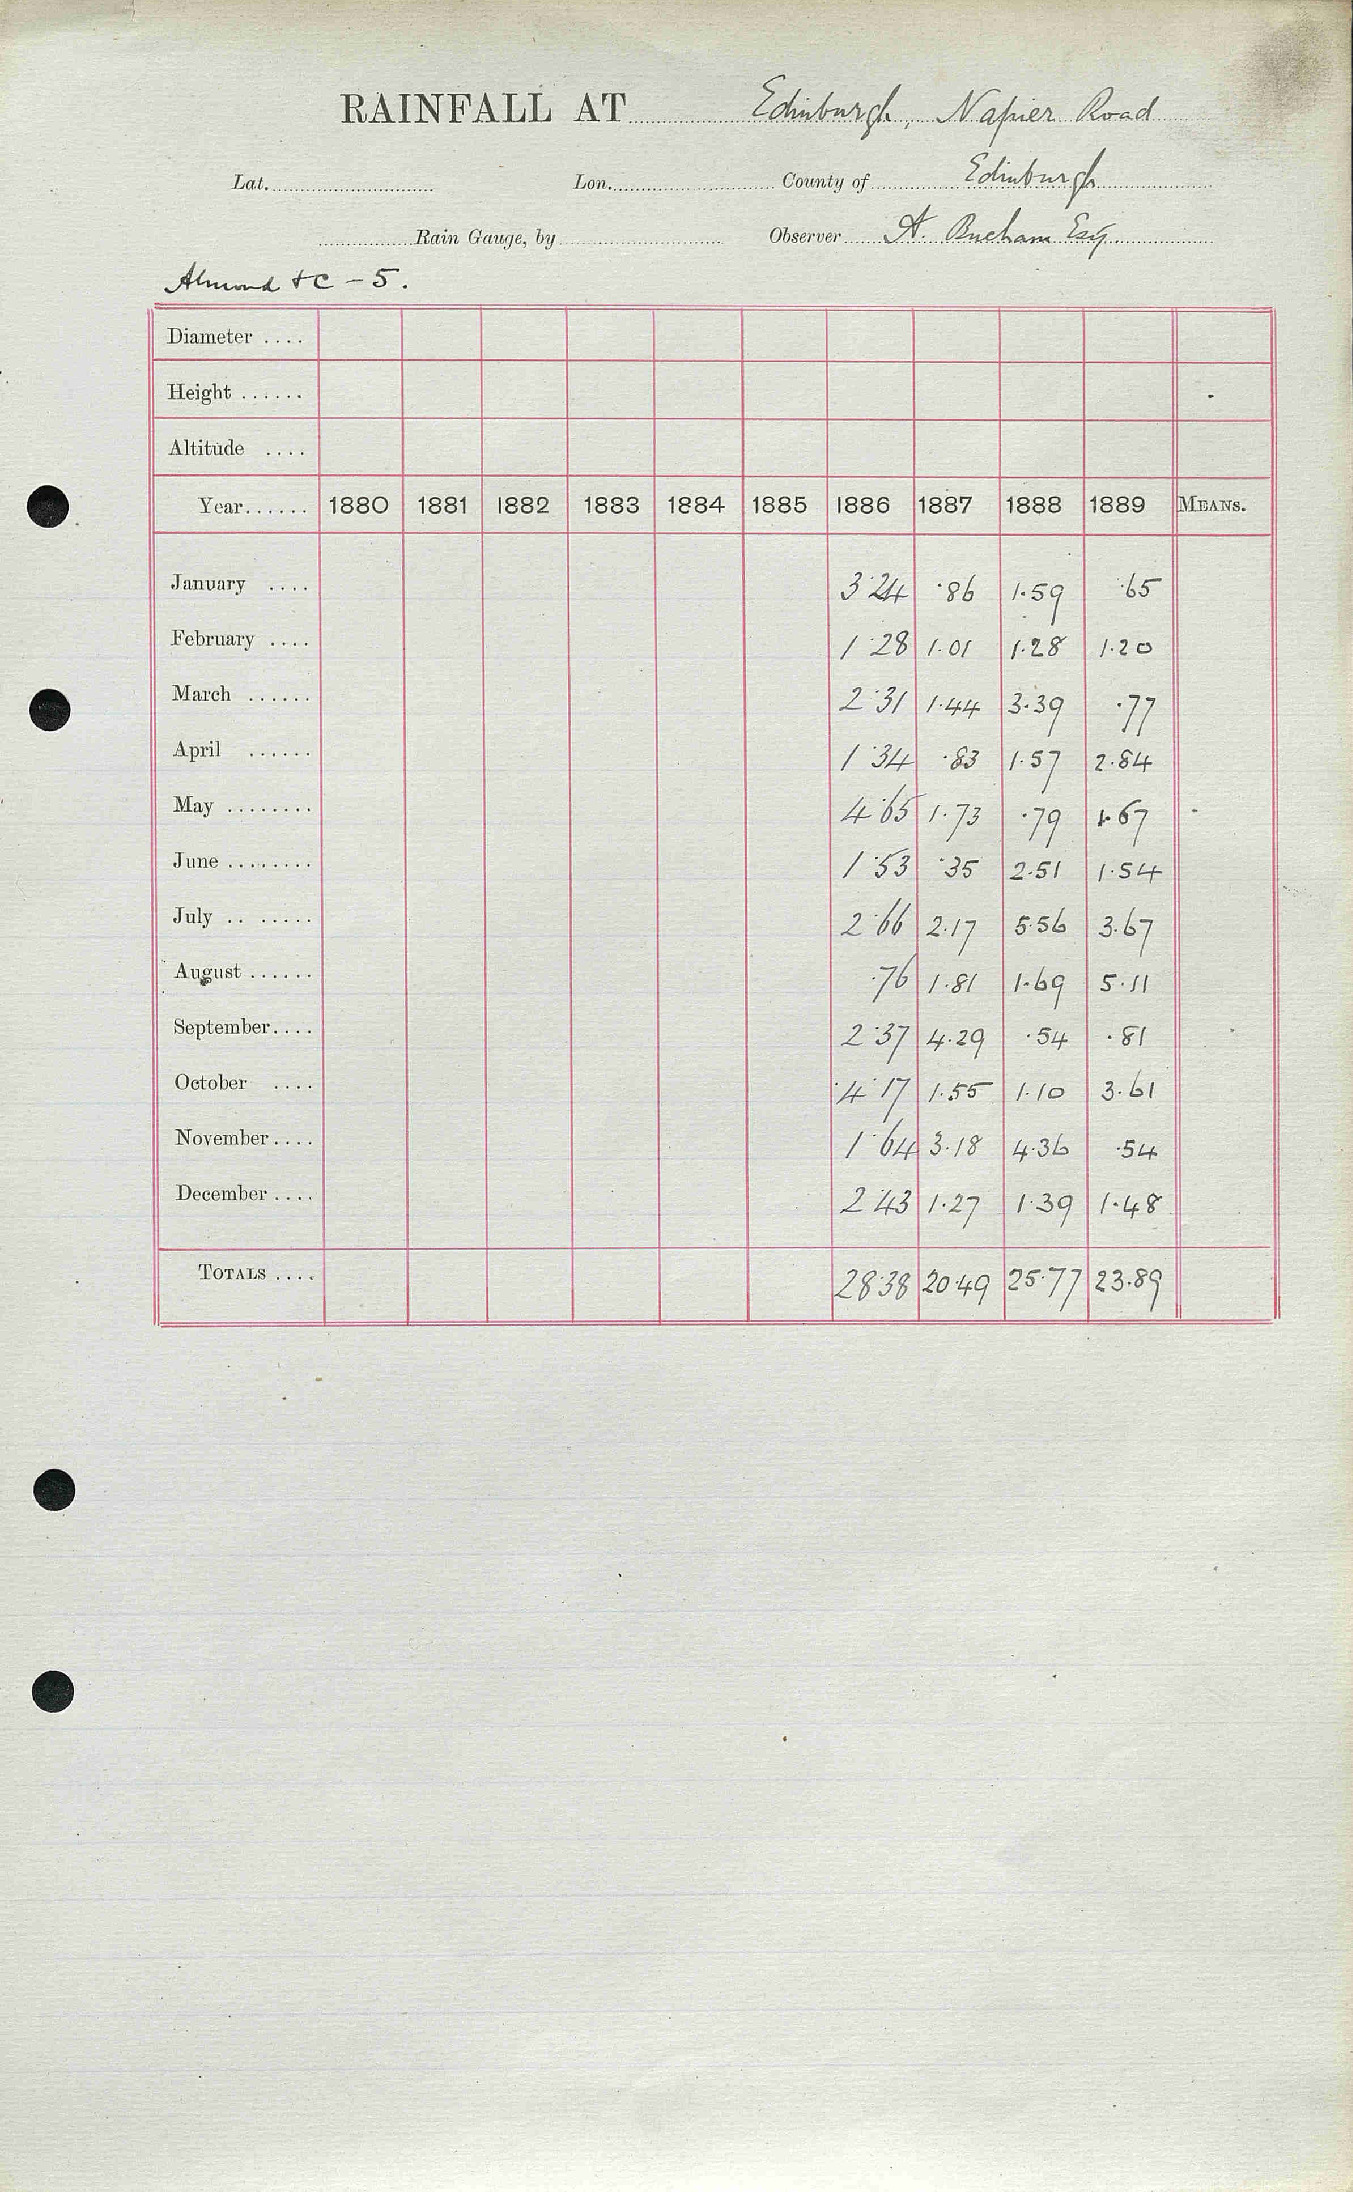 RAINFALL AT Edinburgh, Napier Road
Lat. Lon. County of Edinburgh
Rain Gauge, by Observer A. Buchan Esq.
Almond & C – 5.
Diameter ....
Height ......
Altitude ....
Year...... 1880 1881 1882 1883 1884 1885 1886 1887 1888 1889 MEANS.
January .... 3·24 ·86 1·59 ·65
February .... 1·28 1·01 1·28 1·20
March ...... 2·31 1·44 3·39 ·77
April ...... 1·34 ·83 1·57 2·84
May ........ 4·65 1·73 ·79 1·67
June ........ 1·53 ·35 2·51 1·54
July .. ..... 2·66 2·17 5·56 3·67
August ...... ·76 1·81 1·69 5·11
September.... 2·37 4·29 ·54 ·81
October .... 4·17 1·55 1·10 3·61
November.... 1·64 3·18 4·36 ·54
December.... 2·43 1·27 1·39 1·48
TOTALS .... 28·38 20·49 25·77 23·89